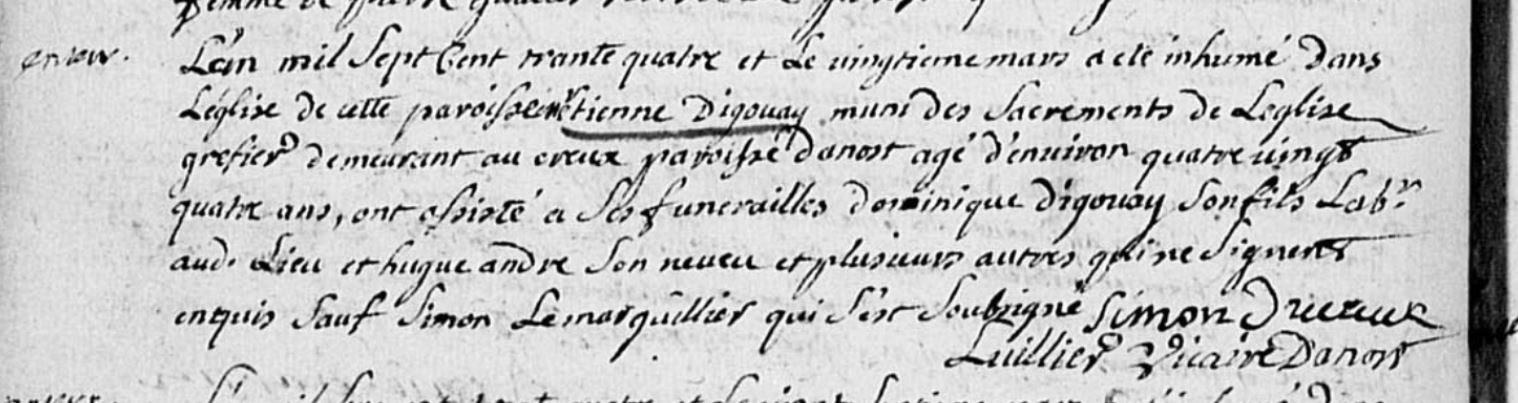 femme de pierre
L'an mil sept Cent trante quatre et Le vingtieme mars a eté inhumé Dans
L'église de cette paroisse mre etienne Digouay muni des Sacrements de Leglise
grefier demeurant au creux paroisse danost agé d'environ quatre vingt
quatre ans, ont assisté a Ses funerailles dominique Digouay Son fils Labr.
aud. Lieu et hugue andre Son neveu et plusieurs autres qui ne Signent
enquis Sauf Simon Lemarguillier qui S'est Soubsigné Simon
Luillier Vicaire Danost